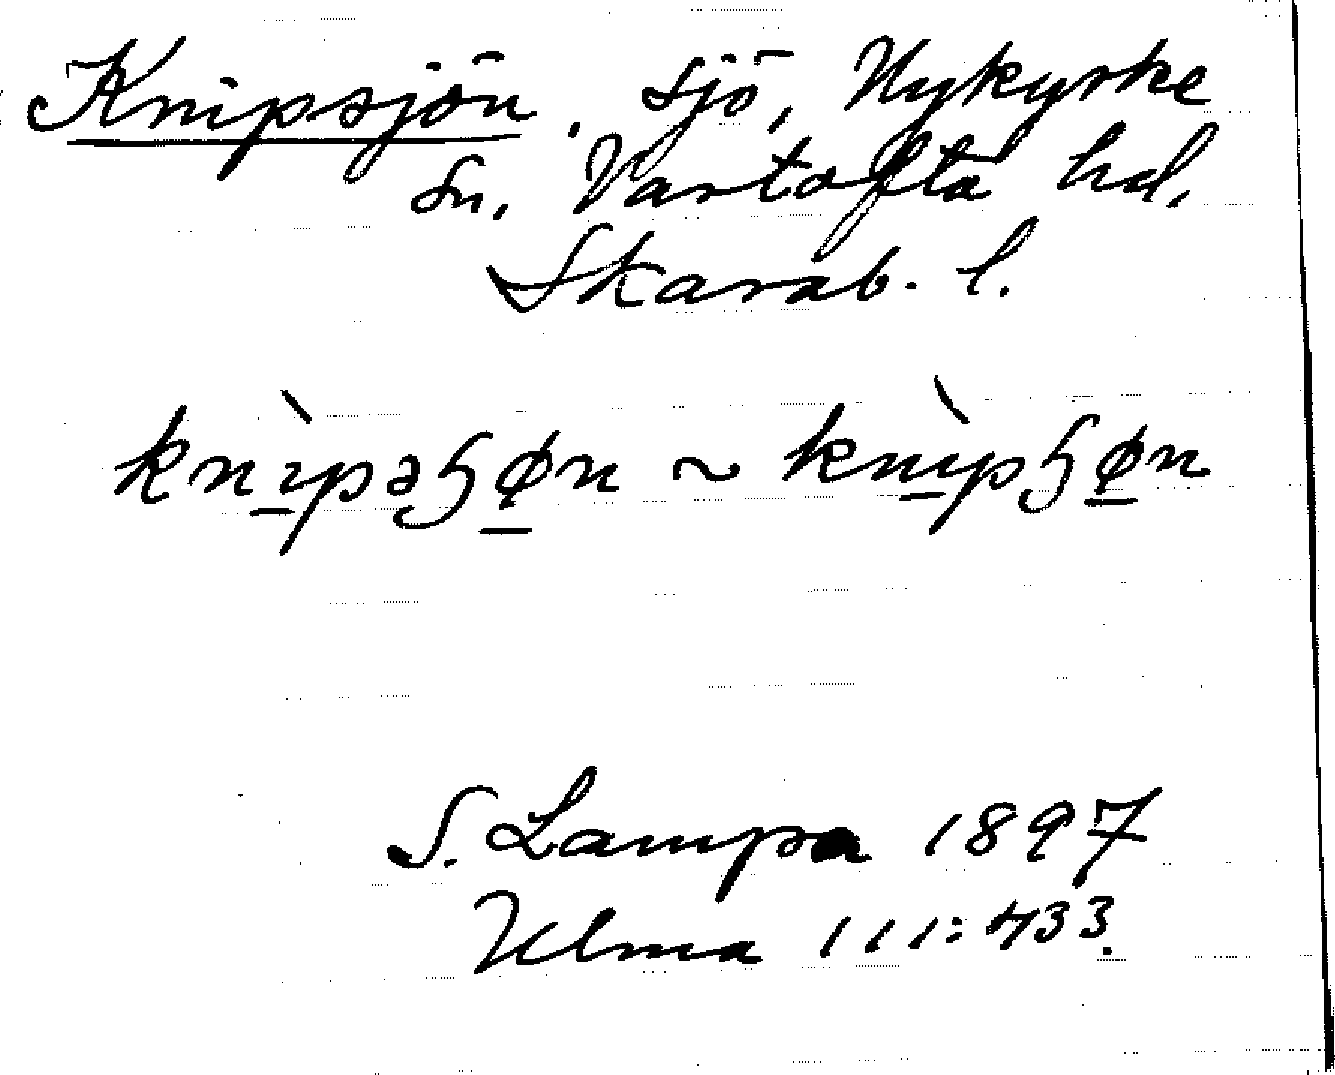 Knipsjön, sjö, Nykyrke
sn, Vartofta hd,
Skarab. l.
knìpəɧøn ~ knìpɧøn
S. Lampa 1897
Ulma 111:433.